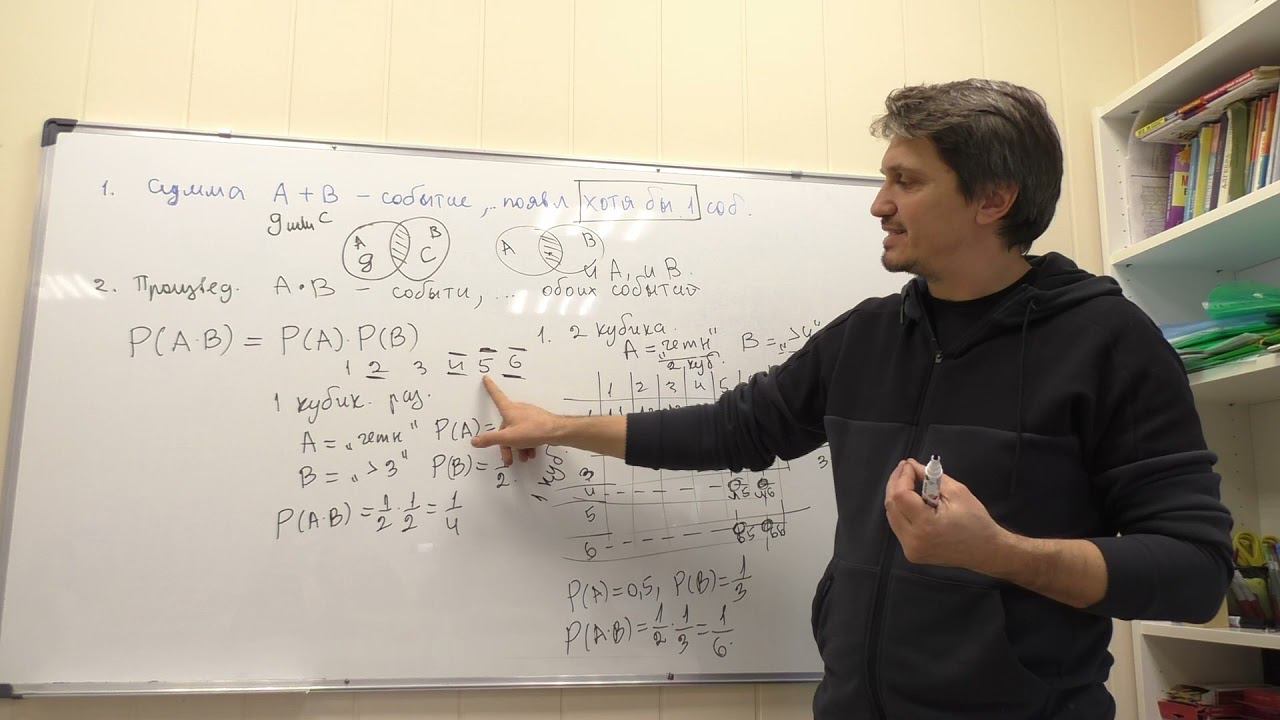 1. сумма A + B – событие, ..появл хотя бы 1 соб.
g или C
A g B C
A B
и A, и B.
2. Произвед. A • B – событи, ... обоих событий
P(A·B) = P(A)·P(B)
1 2 3 4 5 6
1 кубик. раз.
A = „четн“ P(A) =
B = „>3“ P(B) = 1/2.
P(A·B) = 1/2 · 1/2 = 1/4
1. 2 кубика.
A = „четн“ B = „>4“
2 куб.
1 2 3 4 5
1 куб.
3
4 45 46
5
6 65 66
P(A) = 0,5, P(B) = 1/3
P(A·B) = 1/2 · 1/3 = 1/6.